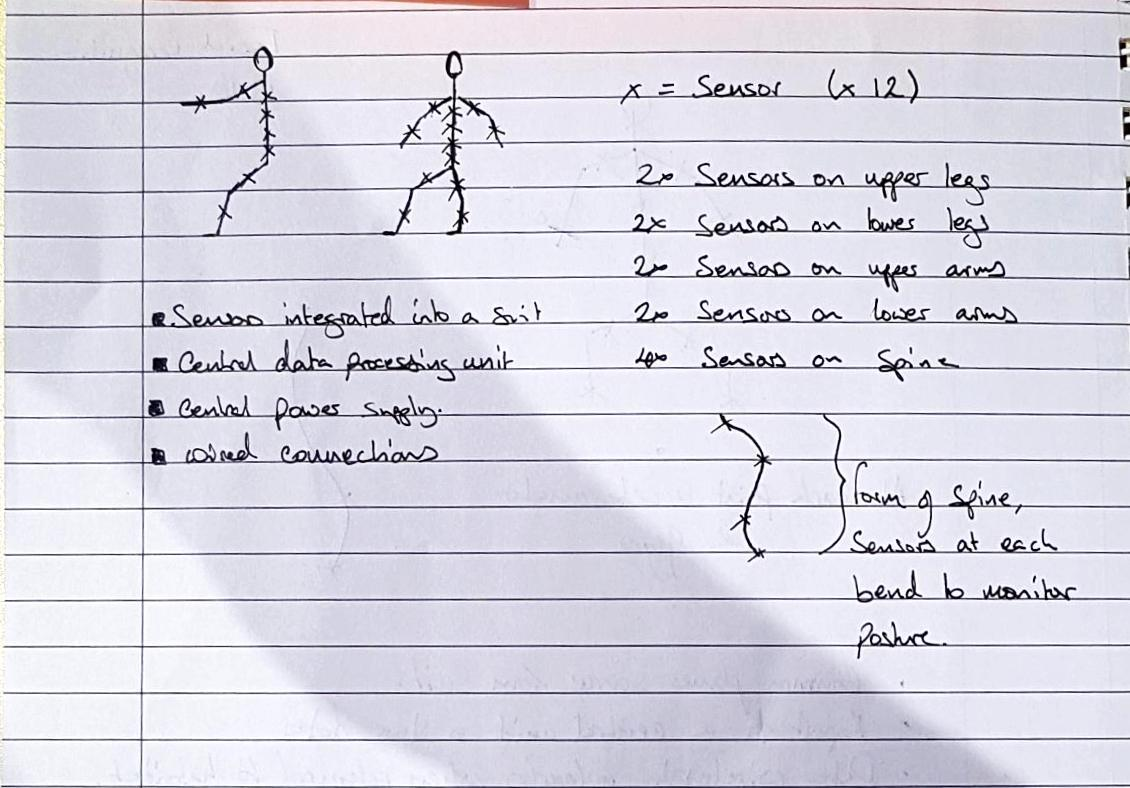 x = Sensor (x 12)
2x Sensors on upper legs
2x Sensors on lower legs
2x Sensors on upper arms
2x Sensors on lower arms
4x Sensors on Spine
Sensors integrated into a Suit
Central data processing unit
Central power supply.
wired connections
form of Spine,
Sensors at each
bend to monitor
posture.